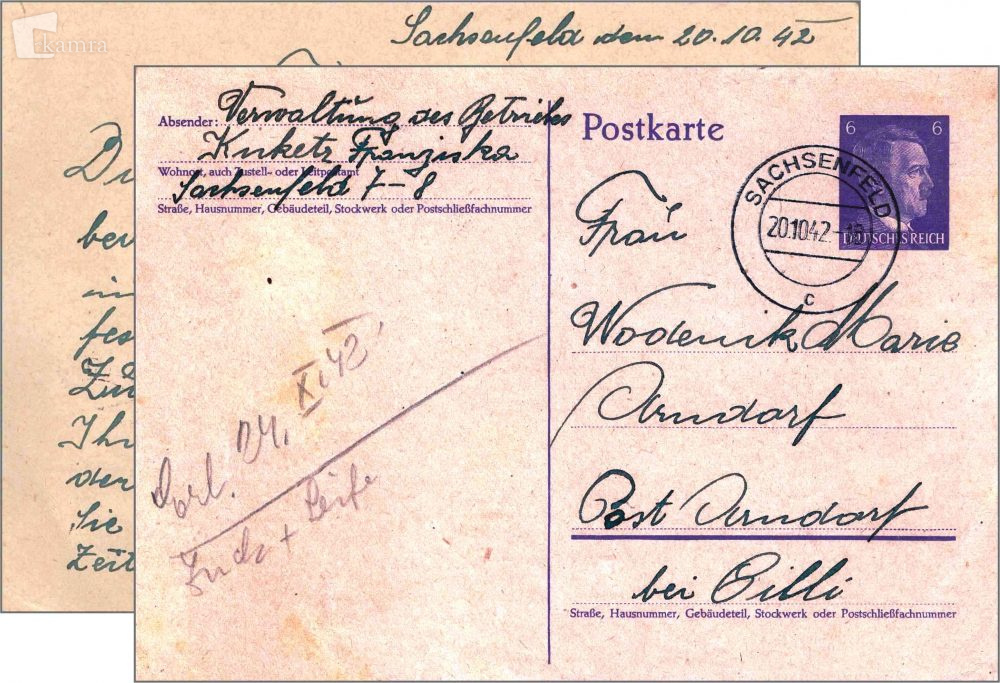 kamra
Sachsenfeld dem 20.10.42
Du
ber
in
fes
Zu
Ihr
der
Sie
Zeit
Absender: Verwaltung des Betriebes
Kuketz Franziska
Wohnort, auch Zustell- oder Leitpostamt
Sachsenfeld 7-8
Straße, Hausnummer, Gebäudeteil, Stockwerk oder Postschließfachnummer
XI 42
Postkarte
6 6
DEUTSCHES REICH
SACHSENFELD
20.10.42.-18
c
Frau
Wodenik Marie
Arndorf
Post Arndorf
bei Cilli
Straße, Hausnummer, Gebäudeteil, Stockwerk oder Postschließfachnummer